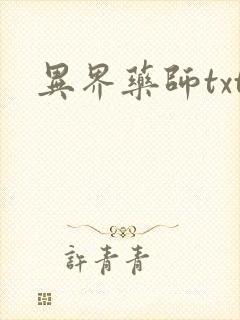 異界藥師txt
許青青